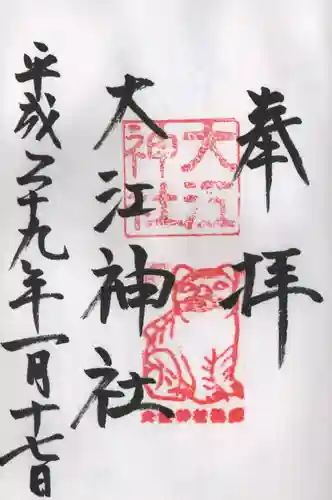 奉拝
大江神社
大江
神社
平成二十九年一月十七日